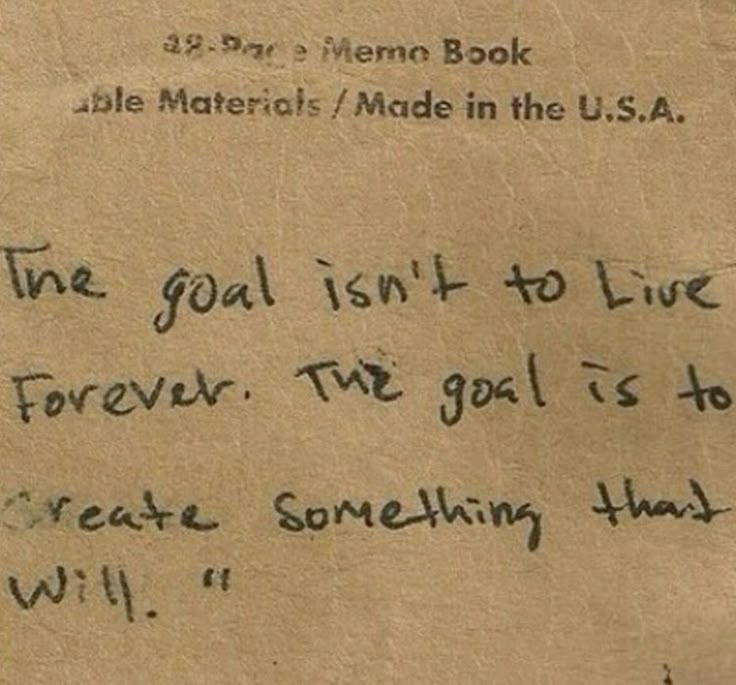 48-Page Memo Book
able Materials / Made in the U.S.A.
The goal isn't to Live
Forever. The goal is to
Create something that
Will. "